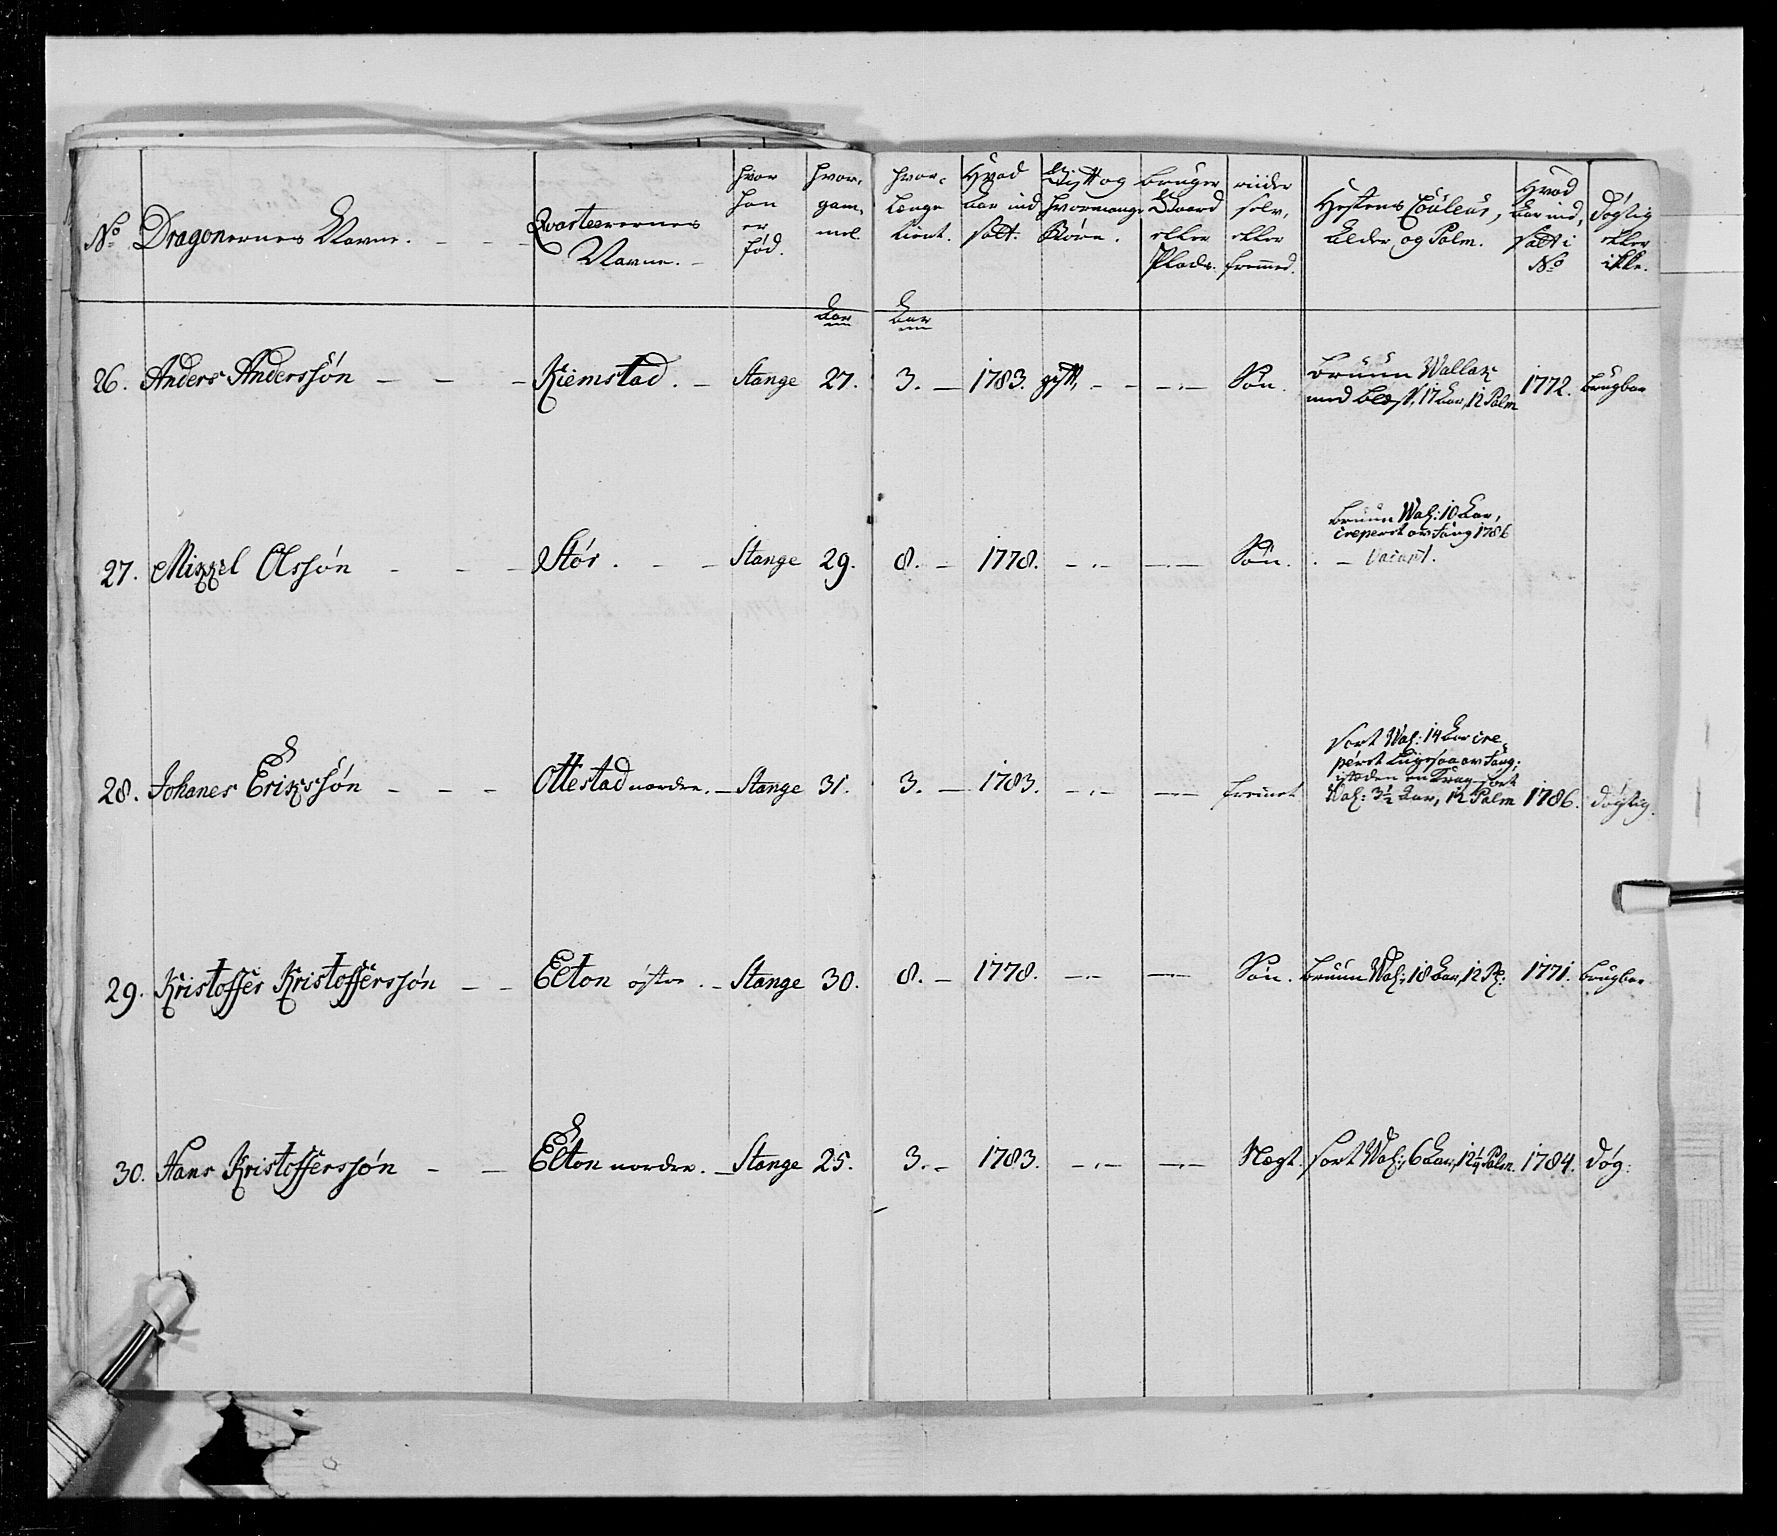 No Dragonernes Navne.
Qvarteerernes Navne.
hvor han er fød.
hvor gammel
hvor længe tient.
Hvad Aar ind sadt.
Gift og hvormange Børn.
bruger Gaard eller Plads.
riider selv, eller fremmed.
Hestens Couleur, Alder og Palm.
Hvad Aar ind sadt i No
døgtig eller ikke.
Aar Aar
26. Anders Anderssøn - - - Kiemstad. - Stange 27. 3. - 1783. gift, - - -.- Søn. bruun Wallak
med blæs, 17 Aar, 12 Palm 1772. brugbar
27. Mikkel Olssøn - - - Stör. - - Stange 29. 8. - 1778. -.- -.- Søn. bruun Wal: 10 Aar,
creperet 1786
- vacant.
28. Johanes Erikssøn - - - Ottestad nordre. - Stange 31. 3. - 1783. -.- -.- fremet sort Wal: 14 Aar cre-
peret
isteden en sort
Wal: 3½ Aar, 12 Palm 1786. døgtig.
29. Kristoffer Kristofferssøn - - Elton östre. - Stange 30. 8. - 1778. -.- -.- Søn. bruun Wal: 18 Aar, 12 P: 1771. brugbar
30. Hans Kristofferssøn - - Elton nordre. - Stange 25. 3. - 1783. -.- -.- Nægt. sort Wal: 6 Aar, 12¼ Palm. 1784. døg: